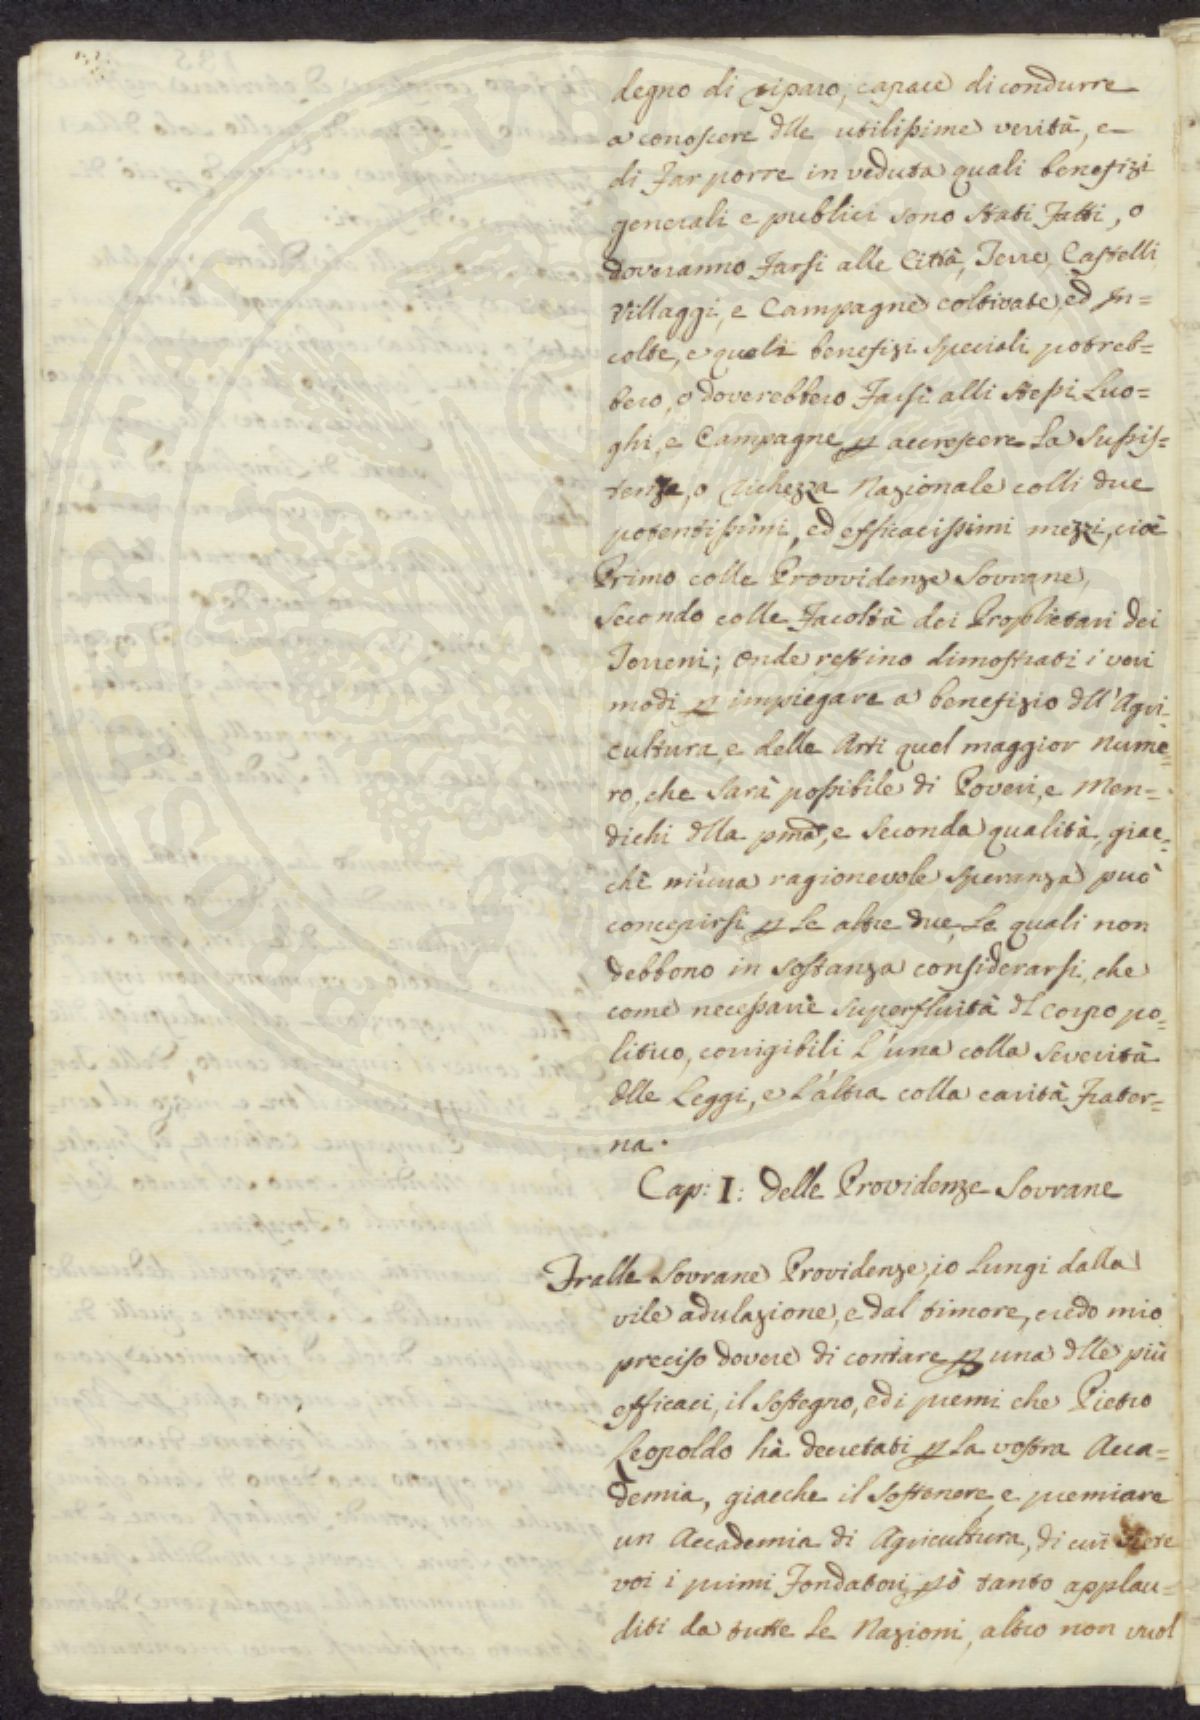 degno di riparo, capace di condurre
a conoscere dlle utilissime verità, e
di far porre in veduta quali benefizi
generali e publici sono stati fatti, o
doveranno farsi alle Città, Terre, Castelli
Villaggi, e Campagne coltivate, ed In=
colte, e quali benefizi speciali potreb=
bero, o doverebbero farsi alli stessi Luo=
ghi, e Campagne p accrescere La Sussis=
tenza, o richezza Nazionale colli due
potentissimi, ed efficacissimi mezzi, cioè
Primo colle Provvidenze Sovrane,
Secondo colle facoltà dei Proprietari dei
Terreni; Onde restino dimostrati i veri
modi p impiegare a benefizio dll'Agri=
cultura, e delle Arti quel maggior nume=
ro, che Sarà possibile di Poveri, e Men=
dichi dlla pma, e Seconda qualità, giac=
chè niuna ragionevole Speranza può
concepirsi p Le altre due, Le quali non
debbono in sostanza considerarsi, che
come necessarie superfluità dl corpo po=
litico, corrigibili L'una colla Severità
dlle Leggi, e L'altra colla carità frater=
na.
Cap: I: delle Providenze Sovrane
Tralle Sovrane Providenze, io Lungi dalla
vile adulazione, e dal timore, credo mio
preciso dovere di contare p una dlle più
efficaci, il Sostegno, ed i premi che Pietro
Leopoldo hà decretati p La vostra Acca=
demia, giacche il Sostenere, e premiare
un Accademia di Agricultura, di cui siete
voi i primi Fondatori, pò tanto applau=
diti da tutte Le Nazioni, altro non vuol